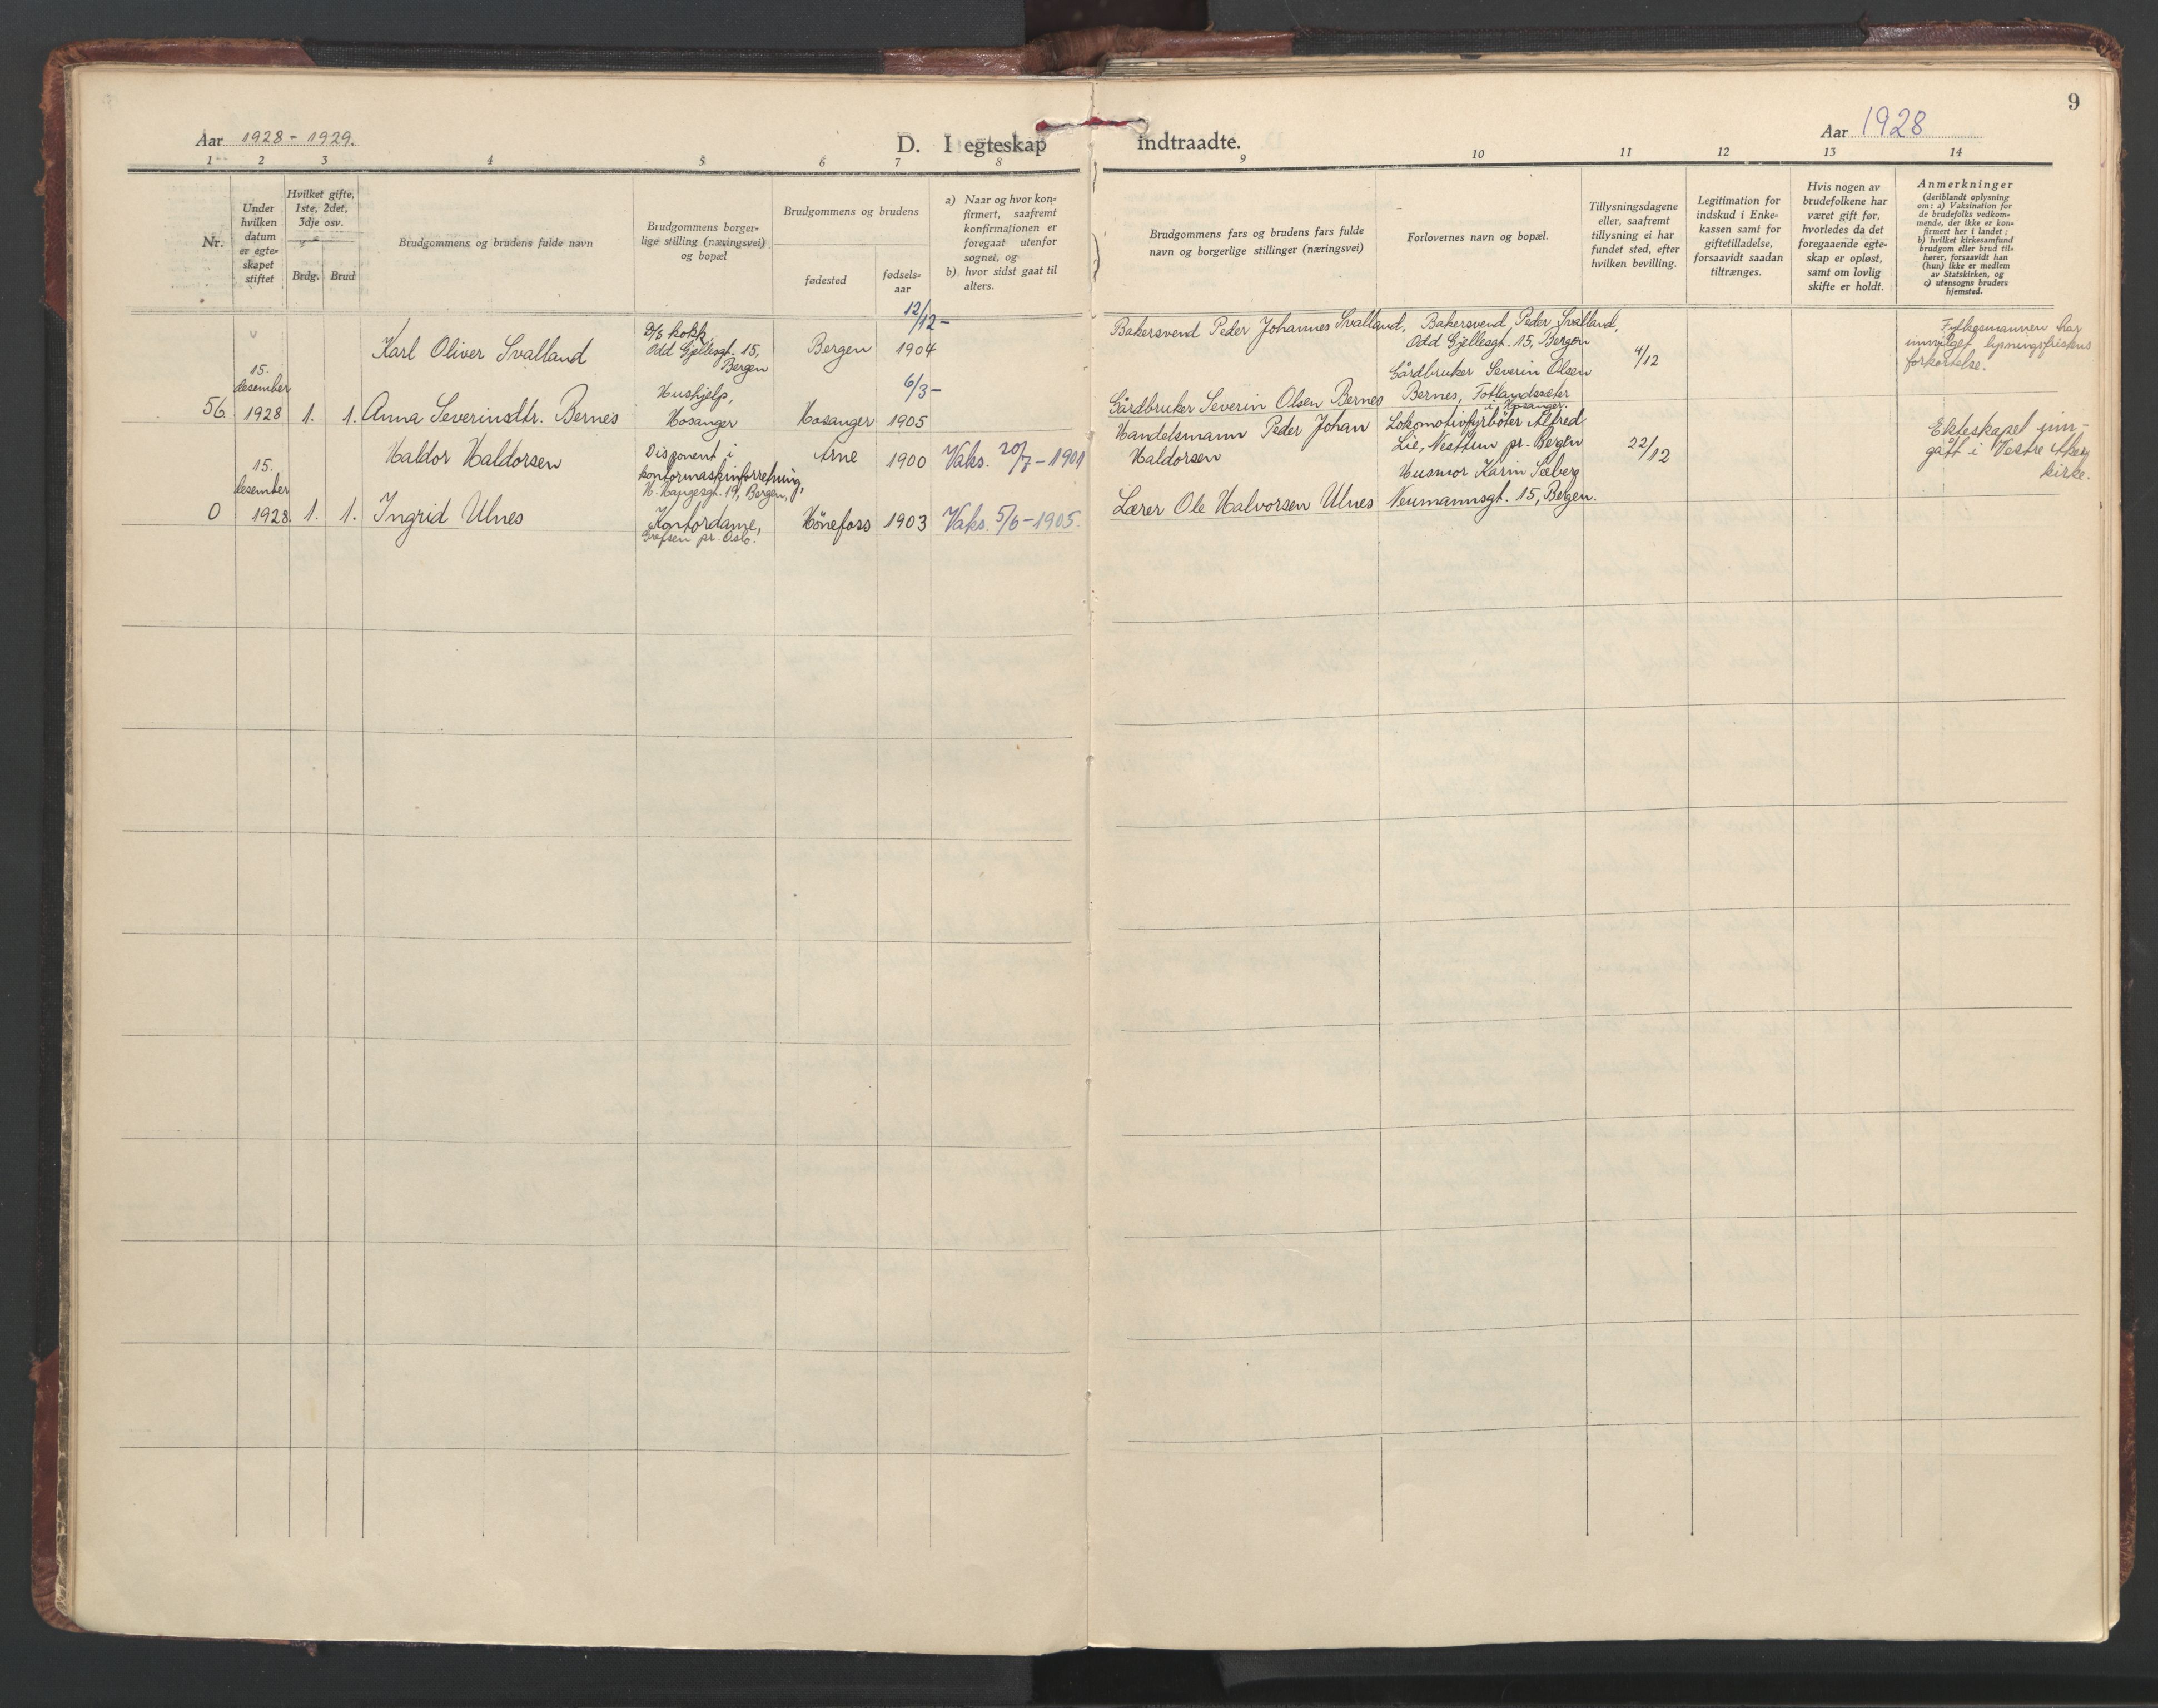 9
Aar 1928 - 1929.
D. I egteskap
indtraadte.
Aar 1928
1 2 3 4 5 6 7 8
9 10 11 12 13 14
Nr.
Under
hvilken
datum
er egte-
skapet
stiftet
Hvilket gifte,
1ste, 2det,
3dje osv.
Brdg. Brud
Brudgommens og brudens fulde navn
Brudgommens borger-
lige stilling (næringsvei)
og bopæl
Brudgommens og brudens
fødested
fødsels-
aar
a) Naar og hvor kon-
firmert, saafremt
konfirmationen er
foregaat utenfor
sognet, og
b) hvor sidst gaat til
alters.
Brudgommens fars og brudens fars fulde
navn og borgerlige stillinger (næringsvei)
Forlovernes navn og bopæl.
Tillysningsdagene
eller, saafremt
tillysning ei har
fundet sted, efter
hvilken bevilling.
Legitimation for
indskud i Enke-
kassen samt for
giftetilladelse,
forsaavidt saadan
tiltrænges.
Hvis nogen av
brudefolkene har
været gift før,
hvorledes da det
foregaaende egte-
skap er opløst,
samt om lovlig
skifte er holdt.
Anmerkninger
(deriblandt oplysning
om: a) Vaksination for
de brudefolks vedkom-
mende, der ikke er kon-
firmert her i landet;
b) hvilket kirkesamfund
brudgom eller brud til-
hører, forsaavidt han
(hun) ikke er medlem
av Statskirken, og
c) utensogns bruders
hjemsted.
56.
15.
desember
1928
1. 1.
Karl Oliver Svalland
D/s kokk,
Odd Gjellesgt. 15,
Bergen
Bergen
12/12-
1904
Bakersvend Peder Johannes Svalland,
Bakersvend Peder Svalland,
Odd Gjellesgt. 15, Bergen
4/12
Fylkesmannen har
innvilget lysningsfristens
forkortelse.
Anna Severinsdtr. Bernes
Hushjelp,
Hosanger
Hosanger
6/3-
1905
Gårdbruker Severin Olsen Bernes
Gårdbruker Severin Olsen
Bernes, Fotlandssæter
i Hosanger.
0
15.
desember
1928.
1. 1.
Haldor Haldorsen
Disponent i
kontormaskinforretning,
H. Haugesgt. 19, Bergen,
Arne
1900
Vaks. 20/7 - 1901
Handelsmann Peder Johan
Haldorsen
Lokomotivfyrbøter Alfred
Lie, Nesttun pr. Bergen
22/12
Ekteskapet inn-
gått i Vestre Aker
kirke.
Ingrid Ulnes
Kontordame,
Grefsen pr. Oslo.
Hönefoss
1903
Vaks. 5/6 - 1905.
Lærer Ole Halvorsen Ulnes
Husmor Karin Seeberg
Neumannsgt. 15, Bergen.